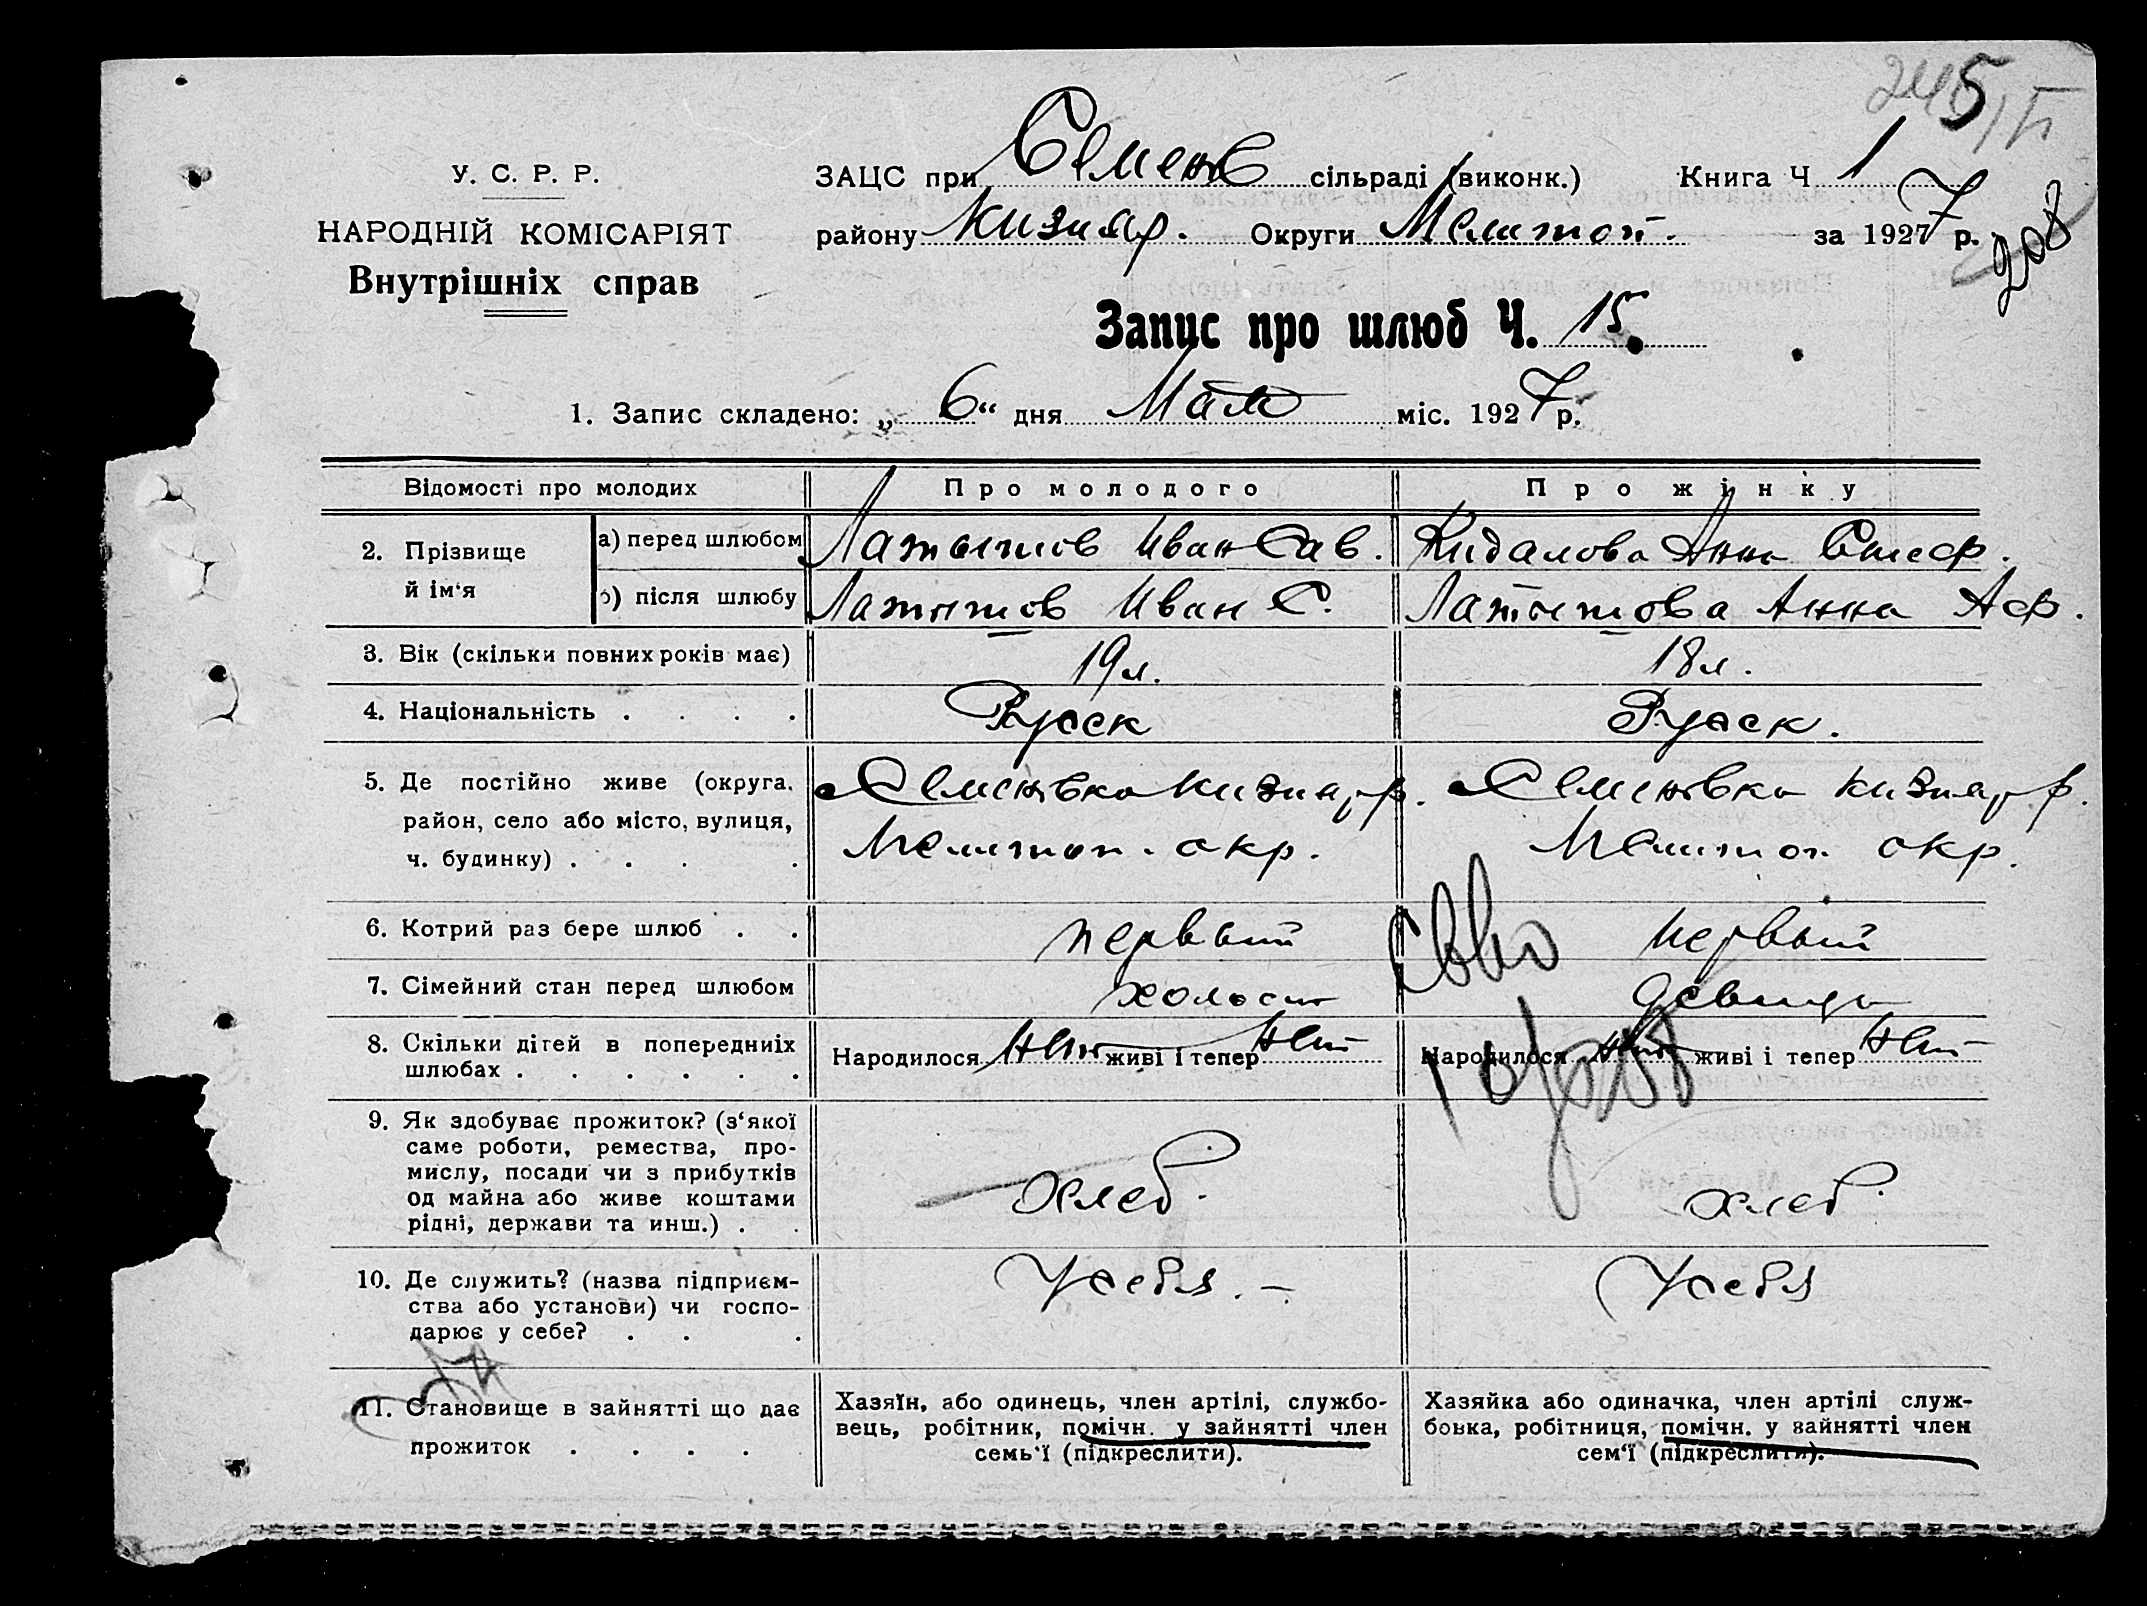 245
У. С. Р. Р.
НАРОДНІЙ КОМІСАРІЯТ
Внутрішніх справ
ЗАЦС при Семенов сільраді (виконк.) Книга Ч 1
району Кизияр. Округи Мелитоп. за 1927 р.
208
Запис про шлюб Ч. 15.
1. Запис складено: „ 6 “ дня Мая міс. 1927 р.
Відомості про молодих Про молодого Про жінку
2. Прізвище й ім‘я
а) перед шлюбом Латышов Иван Сав. Кидалова Анна
б) після шлюбу Латышов Иван С. Латышова Анна Аф.
3. Вік (скільки повних років має) 19 л. 18 л.
4. Національність . . . . Русск Русск.
5. Де постійно живе (округа, Семеновка Кизияр р. Семеновка Кизияр р.
район, село або місто, вулиця, Мелитоп. окр. Мелитоп окр.
ч. будинку) . . . .
6. Котрий раз бере шлюб . . первый первый
7. Сімейний стан перед шлюбом холост девица
8. Скільки дітей в попередниіх Народилося нет живі і тепер нет Народилося нет живі і тепер нет
шлюбах . . . . . .
9. Як здобуває прожиток? (з‘якої
саме роботи, ремества, про-
мислу, посади чи з прибутків
од майна або живе коштами хлеб. хлеб.
рідні, держави та инш.) . .
10. Де служить? (назва підприєм- У себя. – У себя
ства або установи) чи госпо-
дарює у себе? . . .
11. Становище в зайнятті що дає
прожиток . . . .
Хазяїн, або одинець, член артілі, службо-
вець, робітник, помічн. у зайнятті член
семь‘ї (підкреслити).
Хазяйка або одиначка, член артілі служ-
бовка, робітниця, помічн. у зайнятті член
сем‘ї (підкреслити).